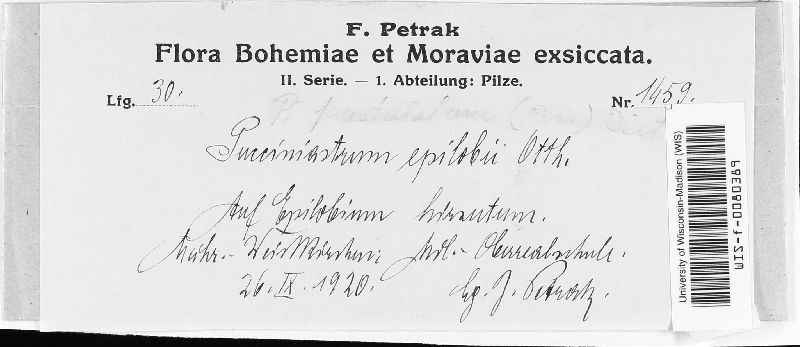 F. Petrak
Flora Bohemiae et Moraviae exsiccata.
II. Serie. — 1. Abteilung: Pilze.
Lfg. 30. Nr. 1459.
P. pustulatum (Pers)
Pucciniastrum epilobii Otth.
Auf Epilobium hirsutum.
Mähr.-Weisskirchen: Mil.-Oberrealschule.
26. IX. 1920. lg. J. Petrak.
University of Wisconsin-Madison (WIS)
WIS-f-0080389